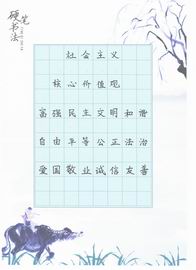 硬笔书法
社会主义
核心价值观
富强民主文明和谐
自由平等公正法治
爱国敬业诚信友善